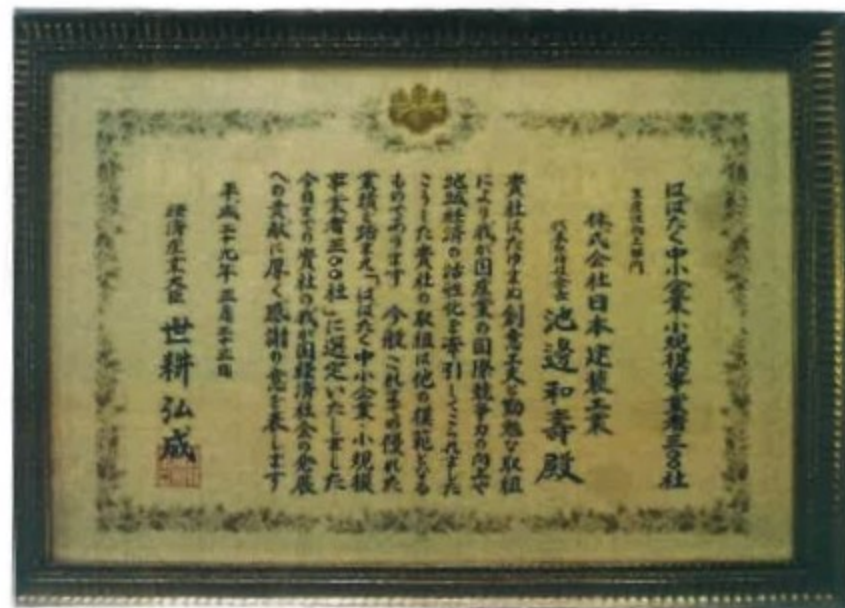 はばたく中小企業・小規模事業者三〇〇社
生産性向上部門
株式会社日本建築工業
代表取締役会長 池邉和壽殿
貴社はたゆまぬ創意工夫と勤勉な取組
により我が国産業の国際競争力の向上や
地域経済の活性化を牽引してこられました
こうした貴社の取組は他の模範となる
ものであります 今般 これまでの優れた
業績を踏まえ「はばたく中小企業・小規模
事業者三〇〇社」に選定いたしました
今日までの貴社の我が国経済社会の発展
への貢献に厚く感謝の意を表します
平成二十九年三月二十三日
経済産業大臣 世耕弘成